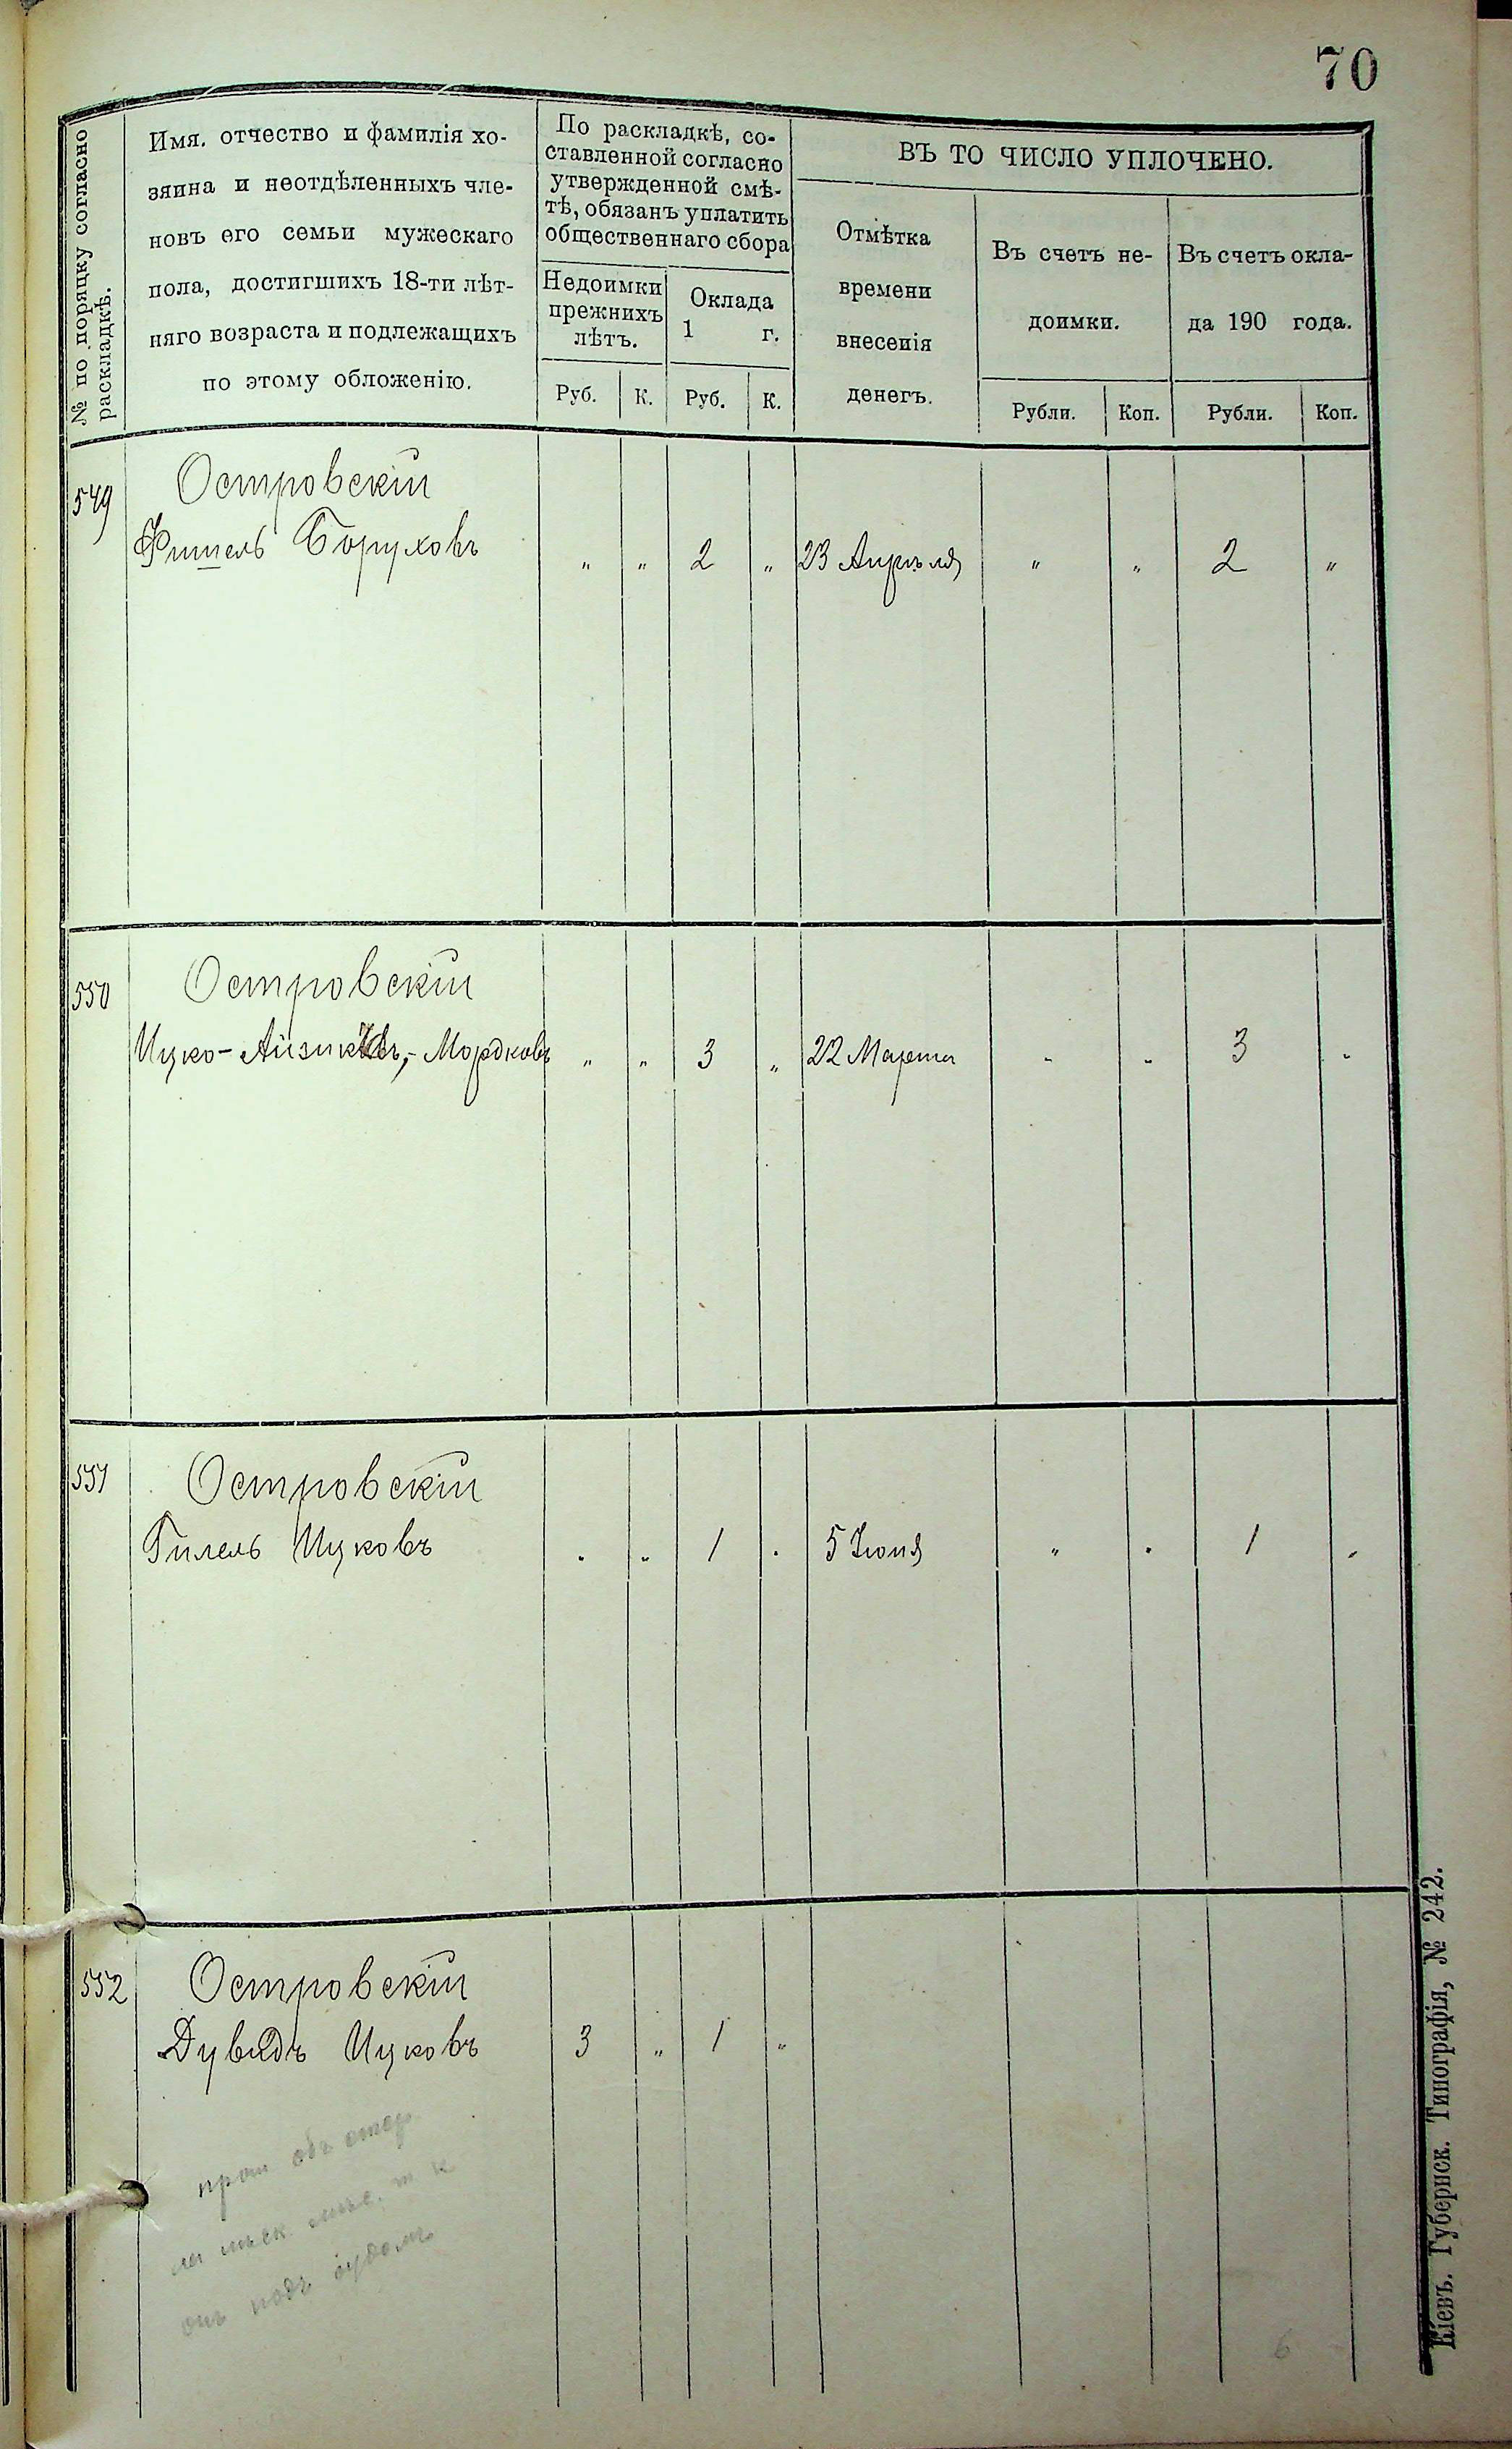 70
№ по порядку согласно
раскладкѣ.
Имя, отчество и фамилія хо-
зяина и неотдѣленныхъ чле-
новъ его семьи мужескаго
пола, достигшихъ 18-ти лѣт-
няго возраста и подлежащихъ
по этому обложенію.
По раскладкѣ, со-
ставленной согласно
утвержденной смѣ-
тѣ, обязанъ уплатить
общественнаго сбора
Недоимки
прежнихъ
лѣтъ.
Оклада
1 г.
Руб. К. Руб. К.
ВЪ ТО ЧИСЛО УПЛОЧЕНО.
Отмѣтка
времени
внесенія
денегъ.
Въ счетъ не-
доимки.
Въ счетъ окла-
да 190 года.
Рубли. Коп. Рубли. Коп.
549 Островскій
Фишель Боруховъ „ „ 2 „ 23 Апрѣля „ „ 2 „
550 Островскій
Ицко-Айзикъ,- Мордковъ „ „ 3 „ 22 Марта „ „ 3 „
551 Островскій
Гилель Ицковъ „ „ 1 „ 5 Іюня „ „ 1 „
552 Островскій
Дувидъ Ицковъ 3 „ 1 „
объ
т к
онъ подъ судомъ
6
Кіевъ. Губернск. Типографія, № 242.